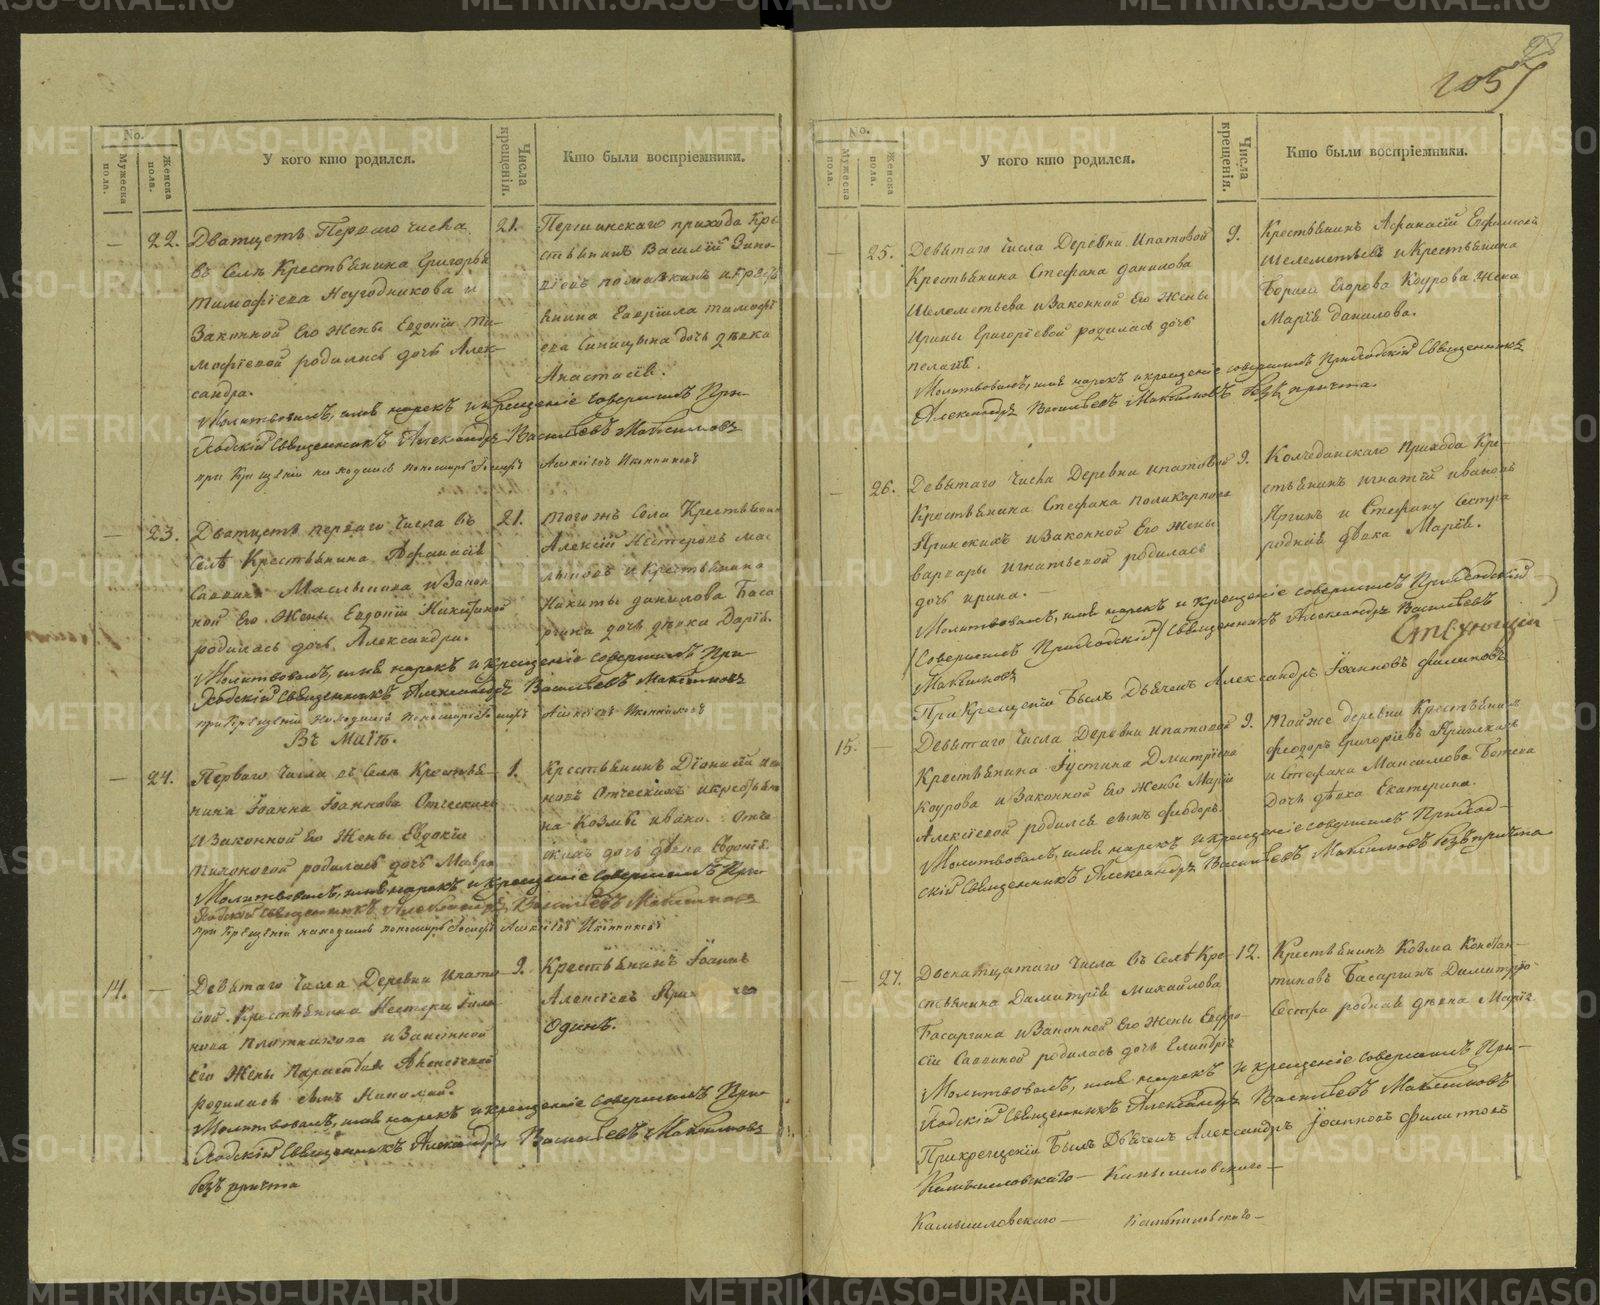 No.
Мужеска пола.
Женска пола.
У кого кто родился.
Числа крещенія.
Кто были воспріемники.
22.
Дватцеть Перваго числа
въ Селѣ Крестьянина Григорья
Тимофіева Неугодникова и
Законной Его Жены Евдокіи Ти-
мофіевой родилась дочь Алек-
сандра.
21.
Першинскаго прихода Кре
стьянинъ Василій Зино-
Гавріила Тимофі
ева Синицына дочь дѣвка
Анастасія.
Молитвовалъ, имя нарекъ и крещеніе совершилъ При-
ходскій Священникъ Александръ Васильевъ Максимовъ
при Крещеніи находился пономарь Іосифъ Алексіевъ Иконниковъ
23.
Дватцеть перваго числа въ
Селѣ Крестьянина Афанасія
Саввина Маслыкина и Закон
ной Его Жены Евдокіи Никитиной
родилась дочь Александра.
21.
тогожъ Села Крестьянинъ
Алексій Нестеровъ Мас
и Крестьянина
Никиты данилова Баса
ргина дочь дѣвка Дарія.
Молитвовалъ, имя нарекъ и крещеніе совершилъ При-
ходскій Священникъ Александръ Васильевъ Максимовъ
при Крещеніи находился пономарь Іосифъ Алексіевъ Иконниковъ
Въ Маіѣ.
24.
Перваго числа въ Селѣ Крестья-
нина Іоанна Іоаннова Отческихъ
и Законной Его Жены Евдокіи
родилась дочь Мавра
1.
Крестьянинъ Діонисій Ив
новъ Отческихъ и крестьяни
на Козмы Ивано. Отче
скихъ дочь дѣвка
Молитвовалъ, имя нарекъ и крещеніе совершилъ При-
ходскій Священникъ Александръ Васильевъ Максимовъ
при Крещеніи находился пономарь Іосифъ Алексіевъ Иконниковъ
14.
Девятаго числа Деревни Ипато
вой Крестьянина Нестера
Плотникова и Законной
Его Жены
родился сынъ Николай.
9.
Крестьянинъ Іоаннъ
Алексіевъ
Одинъ.
Молитвовалъ, имя нарекъ и крещеніе совершилъ При-
ходскій Священникъ Александръ Васильевъ Максимовъ
безъ причта
205
No.
Мужеска пола.
Женска пола.
У кого кто родился.
Числа крещенія.
Кто были воспріемники.
25.
Девятаго числа Деревни Ипатовой
Крестьянина Стефана данилова
Шелеметьева и Законной Его Жены
Ирины Григорьевой родилась дочь
пелагія.
9.
Крестьянинъ Афанасій Евфимовъ
Шелеметьевъ и Крестьянина
Бориса Егорова Коурова Жена
Марія данилова.
Молитвовалъ, имя нарекъ и крещеніе совершилъ Приходскій Священникъ
Александръ Васильевъ Максимовъ безъ причта.
26.
Девятаго числа Деревни Ипатовой
Крестьянина Стефана поликарпова
Яринскихъ и Законной Его Жены
варвары игнатьевой родилась
дочь ирина.
9.
Колчеданскаго Прихода Кре-
стьянинъ игнатій ивановъ
Яргинъ и Стефану Сестра
родная дѣвка Марія.
Молитвовалъ, имя нарекъ и крещеніе совершилъ Приходскій
(Совершилъ Приходскій) Священникъ Александръ Васильевъ
Максимовъ
При Крещеніи былъ Дьячекъ Александръ Іоанновъ филиповъ
15.
Девятаго числа Деревни Ипатовой
Крестьянина Іустина Дмитріева
Коурова и Законной Его Жены Маріи
Алексіевой родился сынъ Фиодоръ.
9.
тойже деревни Крестьянинъ
феодоръ Григорьевъ
и Стефана Максимова
дочь дѣвка Екатерина.
Молитвовалъ, имя нарекъ и крещеніе совершилъ Приход-
скій Священникъ Александръ Васильевъ Максимовъ безъ причта
27.
числа въ Селѣ Кре-
стьянина Димитрія Михайлова
Басаргина и Законной Его Жены Евфро-
сіи Саввиной родилась дочь
12.
Крестьянинъ Козма Констан-
тиновъ Басаргинъ Димитрію
Сестра родная дѣвка Марія
Молитвовалъ, имя нарекъ и крещеніе совершилъ При-
ходскій Священникъ Александръ Васильевъ Максимовъ
При крещеніи былъ Дьячекъ Александръ Іоанновъ филиповъ
Камышловскаго — Камышловскаго —
Камышловскаго — Камышловскаго —
METRIKI.GASO-URAL.RU